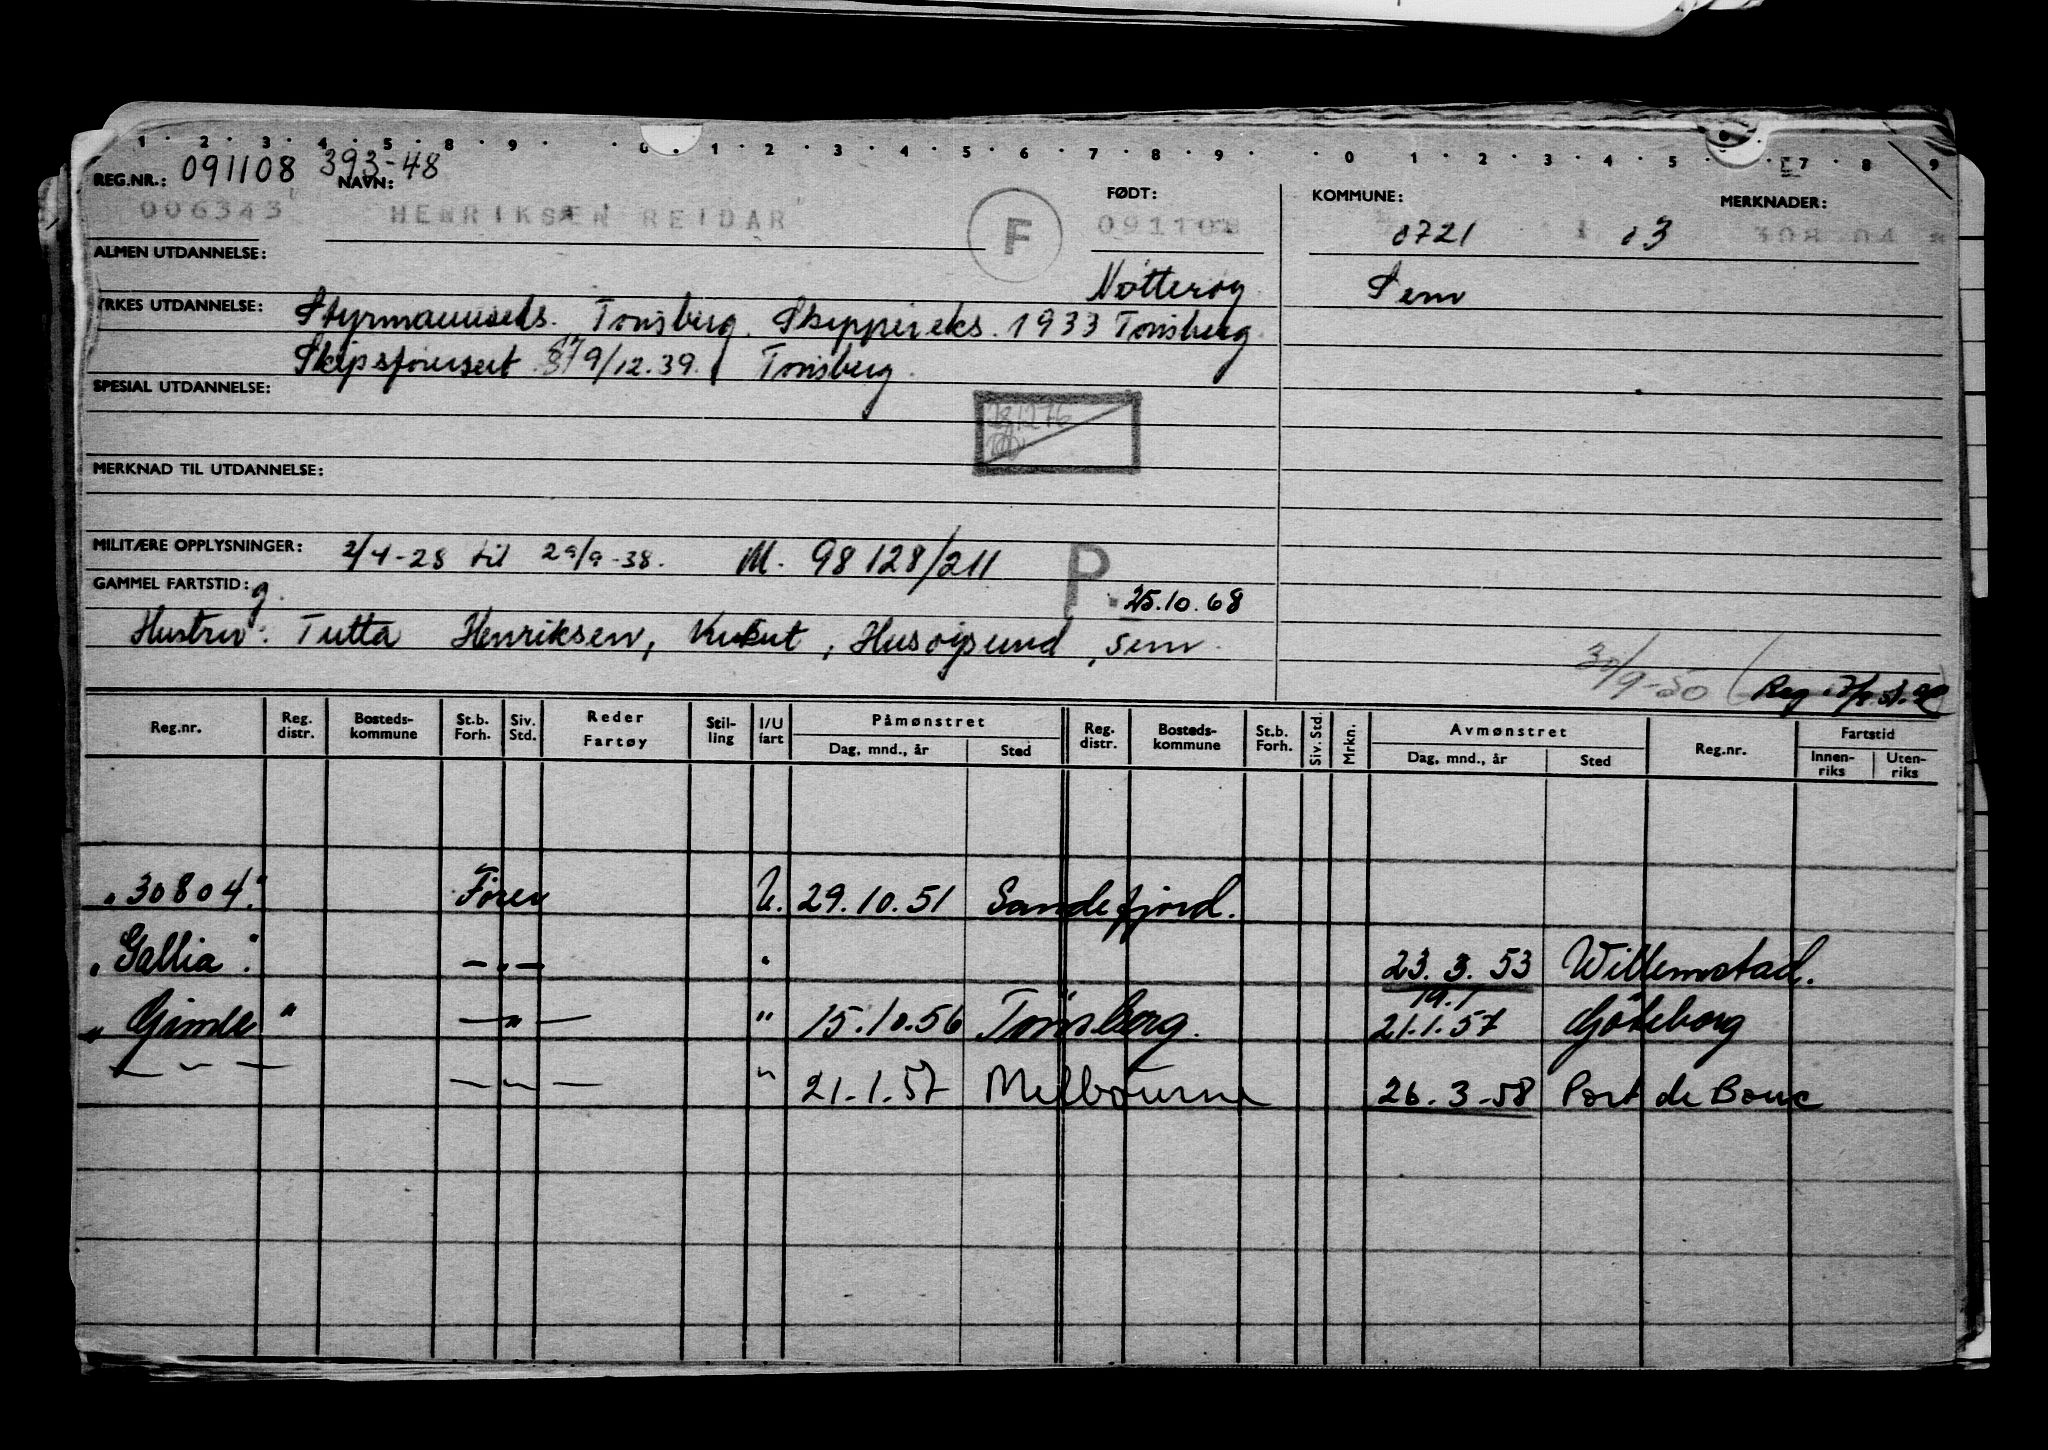 1 · 2 · 3 · 4 · 5 · 8 · 9 · 0 · 1 · 2 · 3 · 4 · 5 · 6 · 7 · 8 · 9 · 0 1 · 2 · 3 · 4 · 5 · 7 · 8 · 9
REG.NR.: 091108 393-48 NAVN: FØDT: KOMMUNE: MERKNADER:
006343 HENRIKSEN REIDAR F 091108 0721 03 308 04
ALMEN UTDANNELSE: Nøtterøy Sem
YRKES UTDANNELSE: Styrmannseks. Tønsberg. Skippereks. 1933 Tønsberg.
Skipsførersert 9/12.39. Tønsberg.
SPESIAL UTDANNELSE:
281276
MERKNAD TIL UTDANNELSE:
MILITÆRE OPPLYSNINGER: 2/4-28 til 29/9-38. M. 98128/211 P.
GAMMEL FARTSTID: g. 25.10.68
Hustru: Tutta Henriksen, , Husøysund, Sem.
30/9-50 (Reg
Reg.nr. Reg. distr. Bosteds-kommune St.b. Forh. Siv. Std. Reder Fartøy Stil-ling I/U fart Påmønstret Dag, mnd., år Sted Reg. distr. Bosteds-kommune St.b. Forh. Siv. Std. Mrkn. Avmønstret Dag, mnd., år Sted Reg.nr. Fartstid Innen-riks Uten-riks
"30804" Fører U. 29.10.51 Sandefjord.
"Gallia" —"— " 23.3.53 Willemstad.
19.1
"Gimle" —"— " 15.10.56 Tønsberg. 21.1.57 Göteborg
—"— —"— " 21.1.57 Melbourne 26.3.58 Port de Bouc